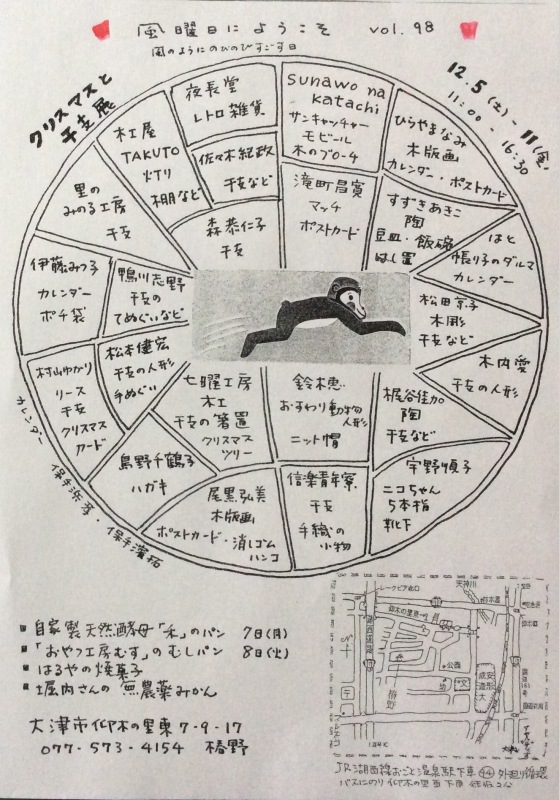 風曜日にようこそ vol.98
風のようにのびのびすごす日
クリスマスと
干支展
12.5(土)-11(金)
11:00-16:30
夜長堂
レトロ雑貨
sunawo na
katachi
サンキャッチャー
モビール
木のブローチ
ひらやまなみ
木版画
カレンダー・ポストカード
木工屋
TAKUTO
灯り
棚など
佐々木紀政
干支など
滝町昌寛
マッチ
ポストカード
すずきあきこ
陶
豆皿・飯碗
はし置
はと
張り子のダルマ
カレンダー
里の
みのる工房
干支
森恭仁子
干支
伊藤みつ子
カレンダー
ポチ袋
鴨川志野
干支の
てぬぐいなど
松田京子
木彫
干支など
木内愛
干支の人形
村山ゆかり
リース
干支
クリスマス
カード
松本健宏
干支の人形
手ぬぐい
七曜工房
木工
干支の箸置
クリスマス
ツリー
鈴木恵
おすわり動物
人形
ニット帽
梶谷佳加
陶
干支など
宇野順子
ニコちゃん
5本指
靴下
島野千鶴子
ハガキ
尾黒弘美
木版画
ポストカード・消しゴム
ハンコ
信楽青年寮
干支
手織の
小物
カレンダー
保手浜孝・保手濱拓
自家製天然酵母「禾」のパン 7日(月)
「おやつ工房むす」のむしパン 8日(火)
はるやの焼菓子
堀内さんの無農薬みかん
大津市仰木の里東7-9-17
077-573-4154 椿野
レークピア北口
天神川
仰木の里東一
公園
幼
文
成安
造形
大
椿野
JR湖西線おごと温泉駅下車 44 外廻り循環
バスにのり仰木の里西下車 徒歩2分